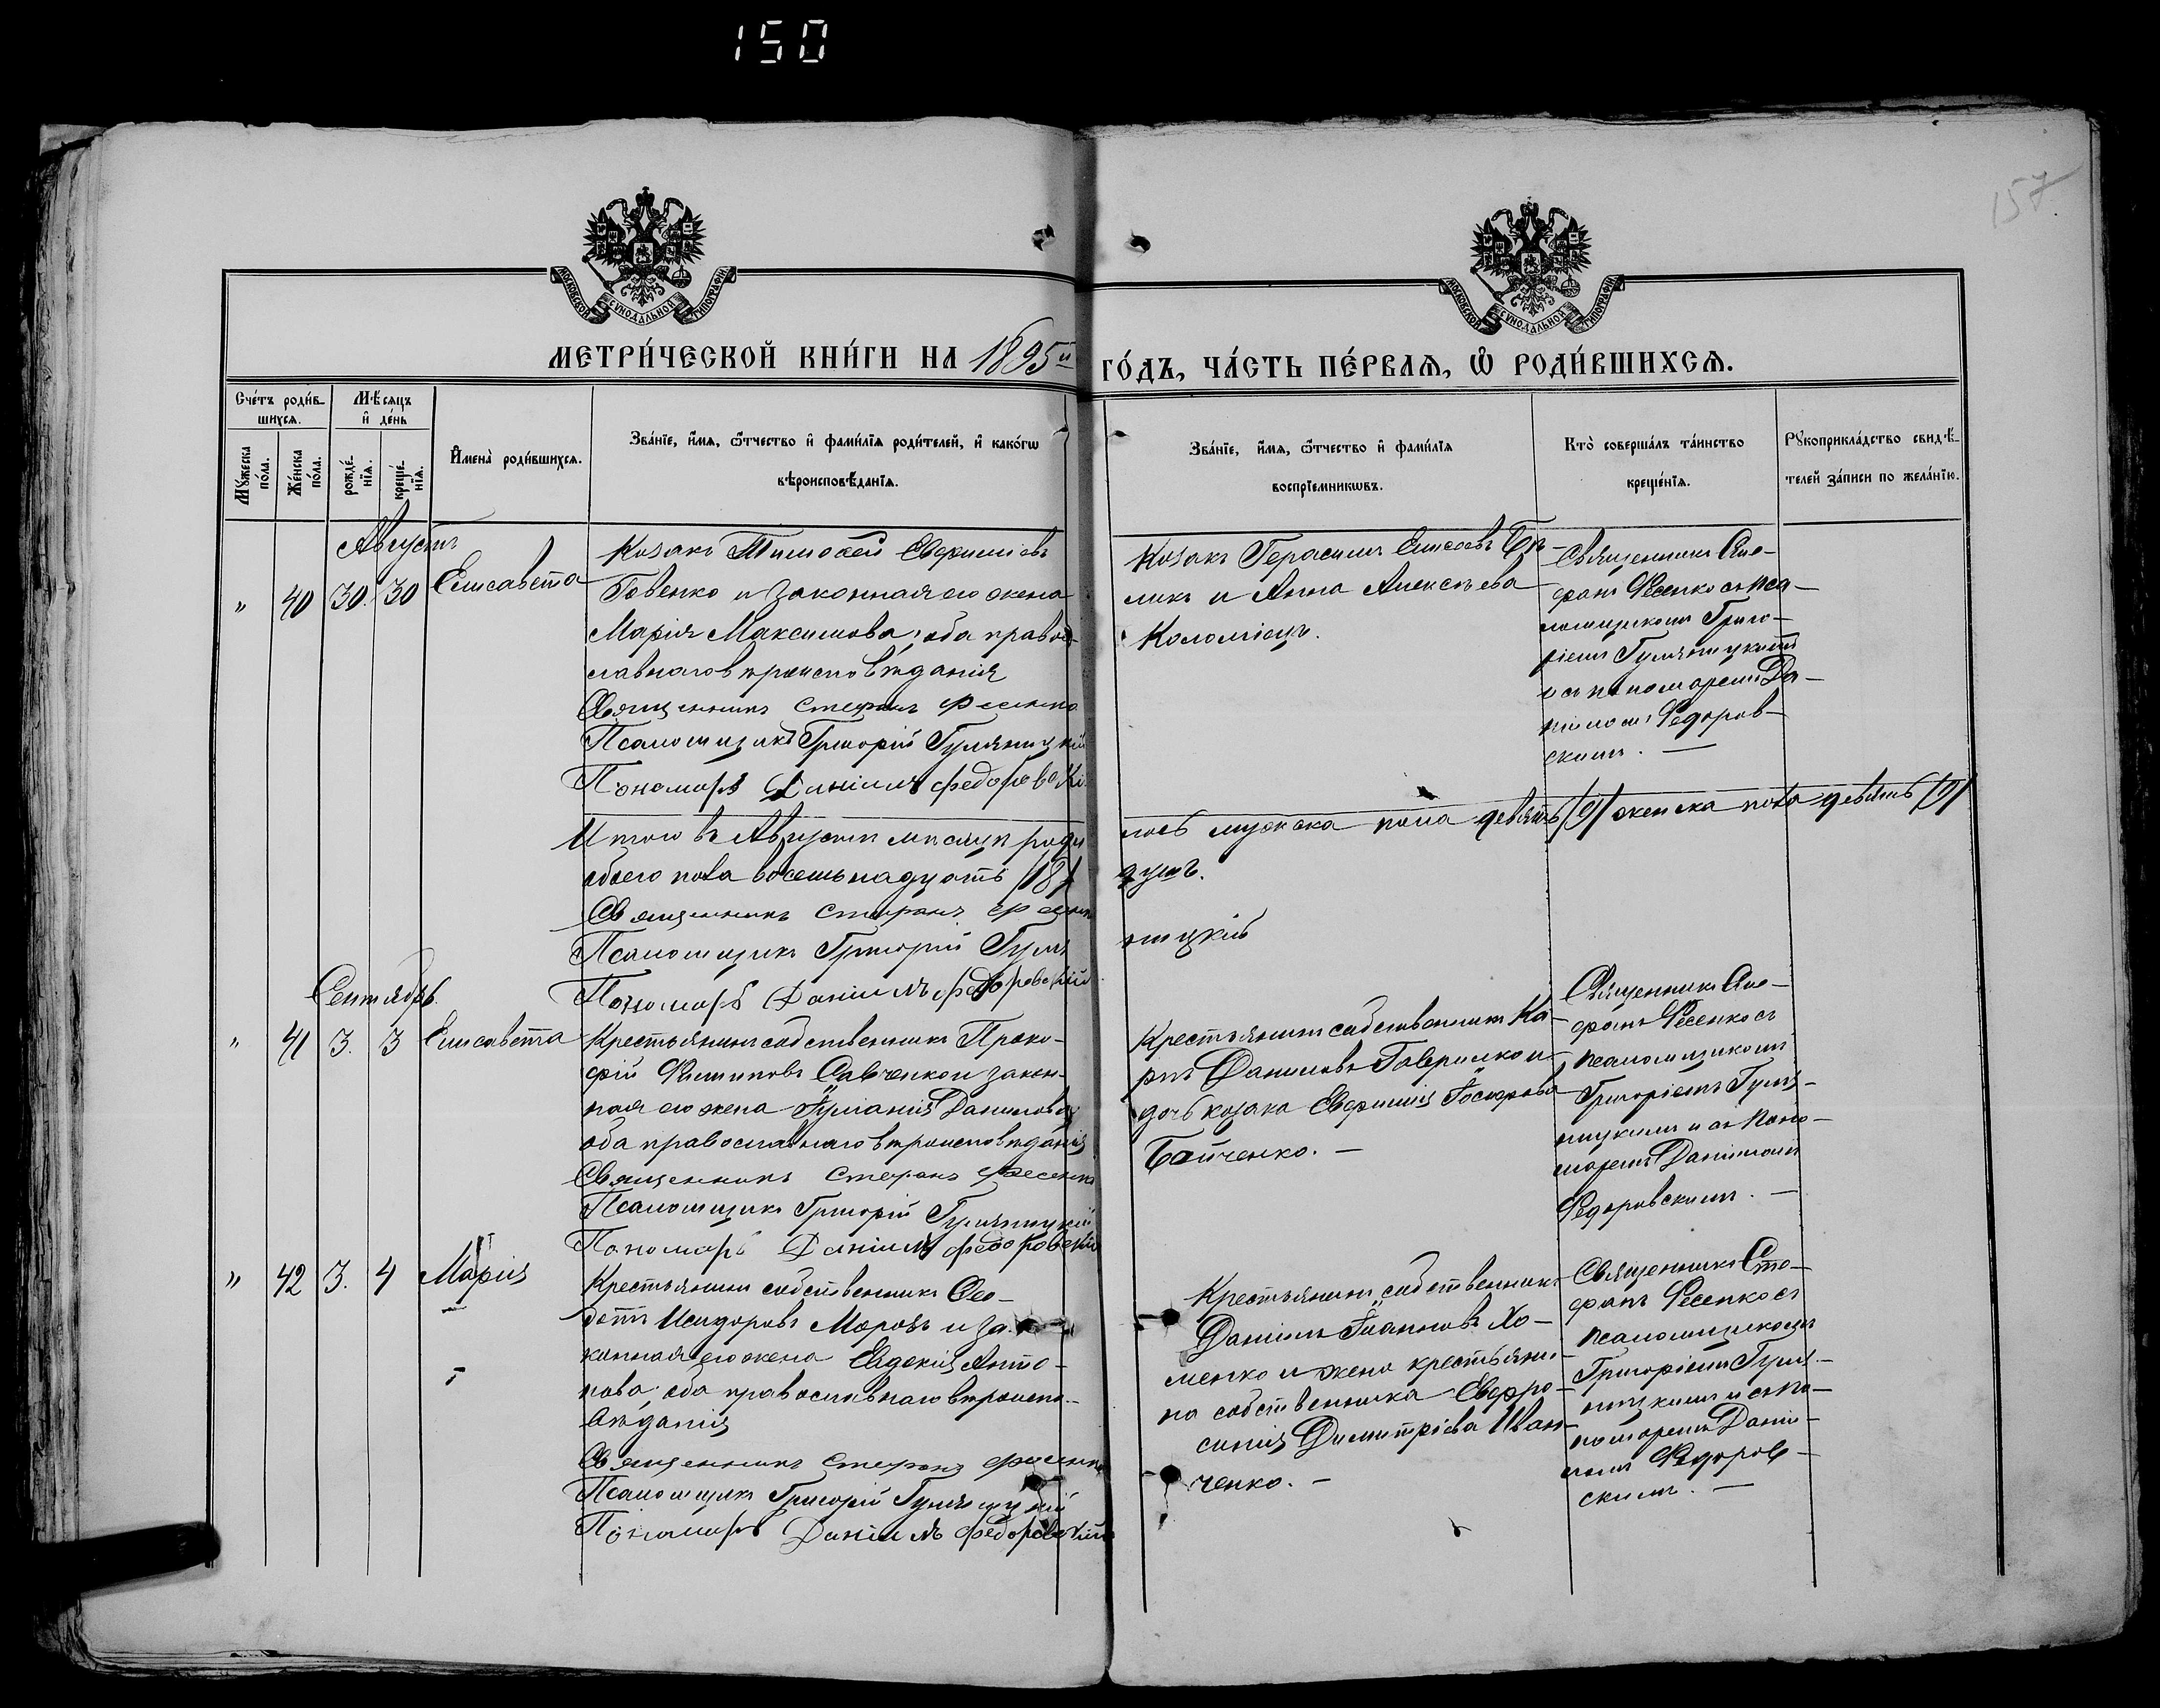 150
157
МОСКОВСКОЙ СѴНОДАЛЬНОЙ ТИПОГРАФІИ
МОСКОВСКОЙ СѴНОДАЛЬНОЙ ТИПОГРАФІИ
МЕТРИ́ЧЕСКОЙ КНИ́ГИ НА 1895й ГО́ДЪ, ЧА́СТЬ ПЕ́РВАѦ, Ѡ РОДИ́ВШИХСѦ.
Сче́тъ роди́в-
шихсѧ.
Мѣ́сяцъ
и҆ де́нь
Мꙋ́жеска
по́ла.
Же́нска
по́ла.
рожде́-
нїѧ.
креще́-
нїѧ.
И҆мена̀ роди́вшихсѧ.
Зва́нїе, и҆́мѧ, ѻ҆́тчество и҆ фами́лїѧ роди́телей, и҆ како́гѡ
вѣроисповѣ́данїѧ.
Зва́нїе, и҆́мѧ, ѻ҆́тчество и҆ фами́лїѧ
воспрїемникѡвъ.
Кто̀ соверша́лъ та́инство
креще́нїѧ.
Рꙋкоприкла́дство свидѣ́-
телей за́писи по жела́нїю.
Августъ
" 40 30. 30 Елисавета
Козакъ Тимофей Евфиміевъ
Говенко и законная его жена
Марія Максимова, оба право-
славнаго вѣроисповѣданія
Священникъ Стефанъ Фесенко
Псаломщикъ Григорій Гуляницкій
Пономарь Даніилъ Федоровскі
Козакъ Герасимъ Елисеевъ
и Анна Алексѣева
Коломіецъ.
Священникъ Сте-
фанъ Фесенко съ пса-
ломщикомъ Григо-
ріемъ Гуляницкимъ
и съ пономаремъ Да-
ніиломъ Федоров-
скимъ. —
Итого въ Августѣ мѣсяцѣ роди
лось мужска пола девять /9/ женска пола девять /9/
обоего пола восемьнадцать /18/
душъ.
Священникъ Стефанъ Фесенко
Псаломщикъ Григорій Гуля
ницкій
Пономарь Даніилъ Федоровскій
Сентябрь.
" 41 3. 3 Елисавета
Крестьянинъ собственникъ Проко-
фій Филиповъ Савченко и закон-
ная его жена Іуліанія Данилова,
оба православнаго вѣроисповѣданія
Священникъ Стефанъ Фесенко
Псаломщикъ Григорій Гуляницкій
Пономарь Даніилъ Федоровскій
Крестьянинъ собственникъ Ка-
рпъ Даниловъ Гаврилко и
дочь козака Евфимія
Байченко. —
Священникъ Сте-
фанъ Фесенко съ
псаломщикомъ
Григоріемъ Гуля-
ницкимъ и съ поно-
маремъ Даніиломъ
Федоровскимъ. —
" 42 3. 4 Марія
Крестьянинъ собственникъ Ѳео-
дотъ Исидоровъ Морозъ и за-
конная его жена Евдокія Анто-
нова, оба православнаго вѣроиспо-
вѣданія
Священникъ Стефанъ Фесенко
Псаломщикъ Григорій Гуляницкій
Пономарь Даніилъ Федоровскій
Крестьянинъ собственникъ
Даніилъ Іоанновъ Хо-
менко и жена крестьяни-
на собственника Евфро-
синія Димитріева Иван-
ченко. —
Священникъ Сте-
фанъ Фесенко съ
псаломщикомъ
Григоріемъ Гуля-
ницкимъ и съ по-
номаремъ Даніи-
ломъ Федоров-
скимъ. —